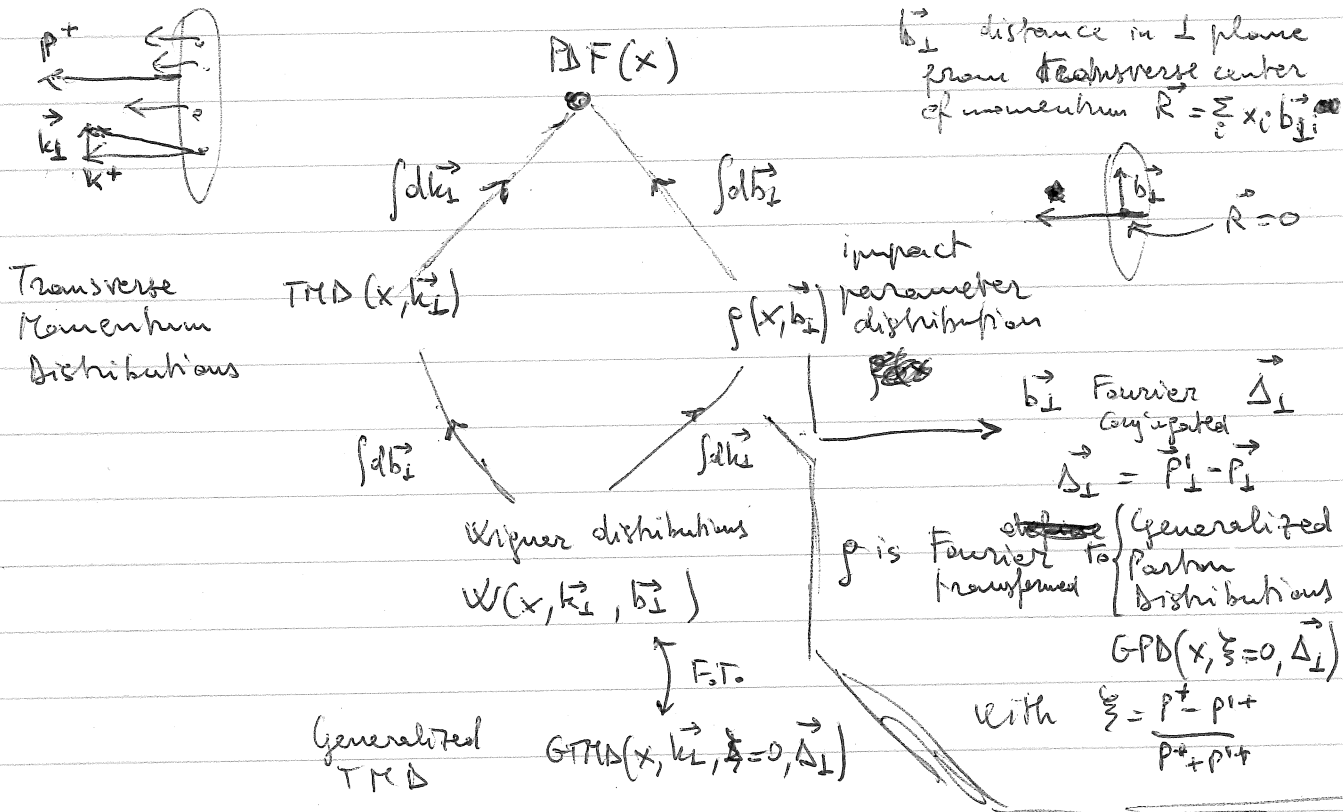 P⁺
k⃗⊥
k⁺
PDF(x)
b⃗⊥ distance in ⊥ plane
from transverse center
of momentum R⃗ = Σᵢ xᵢ b⃗⊥ᵢ
∫dk⃗⊥
∫db⃗⊥
b⃗⊥
R⃗=0
Transverse
Momentum
Distributions
TMD(x,k⃗⊥)
ρ(x,b⃗⊥)
impact
parameter
distribution
∫db⃗⊥
∫dk⃗⊥
b⃗⊥ Fourier Δ⃗⊥
conjugated
Δ⃗⊥ = P⃗'⊥ - P⃗⊥
Wigner distributions
W(x,k⃗⊥,b⃗⊥)
ρ is Fourier to { Generalized
transformed Parton
Distributions
GPD(x,ξ=0,Δ⃗⊥)
with ξ = P⁺ - P'⁺
P⁺ + P'⁺
F.T.
Generalized
TMD
GTMD(x,k⃗⊥,ξ=0,Δ⃗⊥)